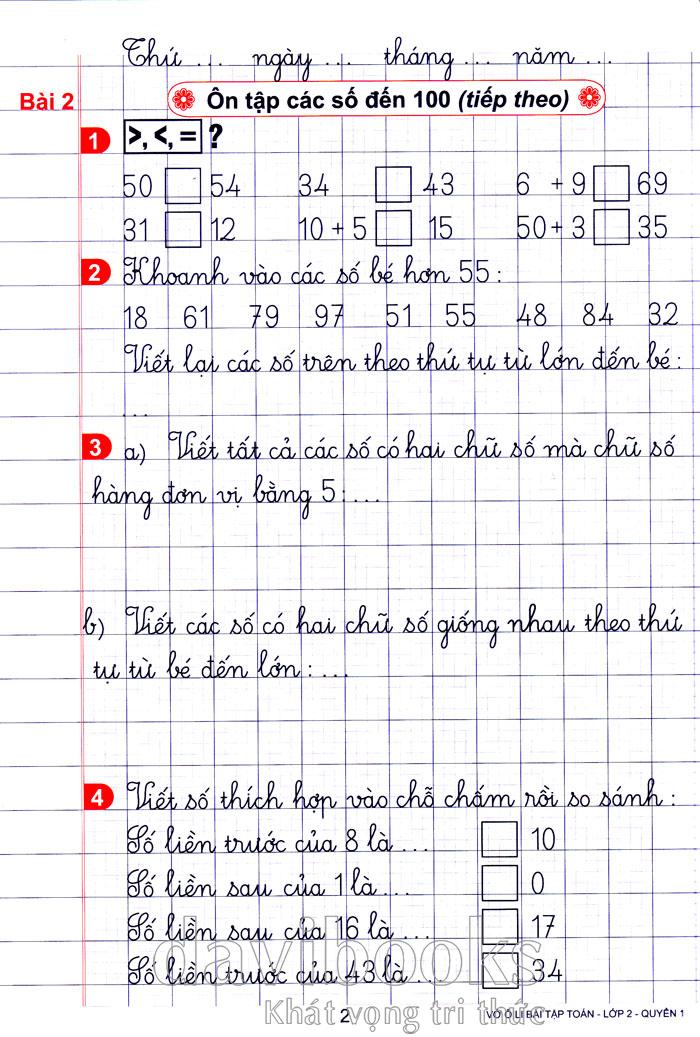 Thứ ... ngày ... tháng ... năm ...
Bài 2
Ôn tập các số đến 100 (tiếp theo)
1 >, <, = ?
50 □ 54 34 □ 43 6 + 9 □ 69
31 □ 12 10 + 5 □ 15 50 + 3 □ 35
2 Khoanh vào các số bé hơn 55 :
18 61 79 97 51 55 48 84 32
Viết lại các số trên theo thứ tự từ lớn đến bé :
...
3 a) Viết tất cả các số có hai chữ số mà chữ số
hàng đơn vị bằng 5 : ...
b) Viết các số có hai chữ số giống nhau theo thứ
tự từ bé đến lớn : ...
4 Viết số thích hợp vào chỗ chấm rồi so sánh :
Số liền trước của 8 là ... □ 10
Số liền sau của 1 là ... □ 0
Số liền sau của 16 là ... □ 17
Số liền trước của 43 là ... □ 34
davibooks
Khát vọng tri thức
2
VỞ Ô LI BÀI TẬP TOÁN - LỚP 2 - QUYỂN 1